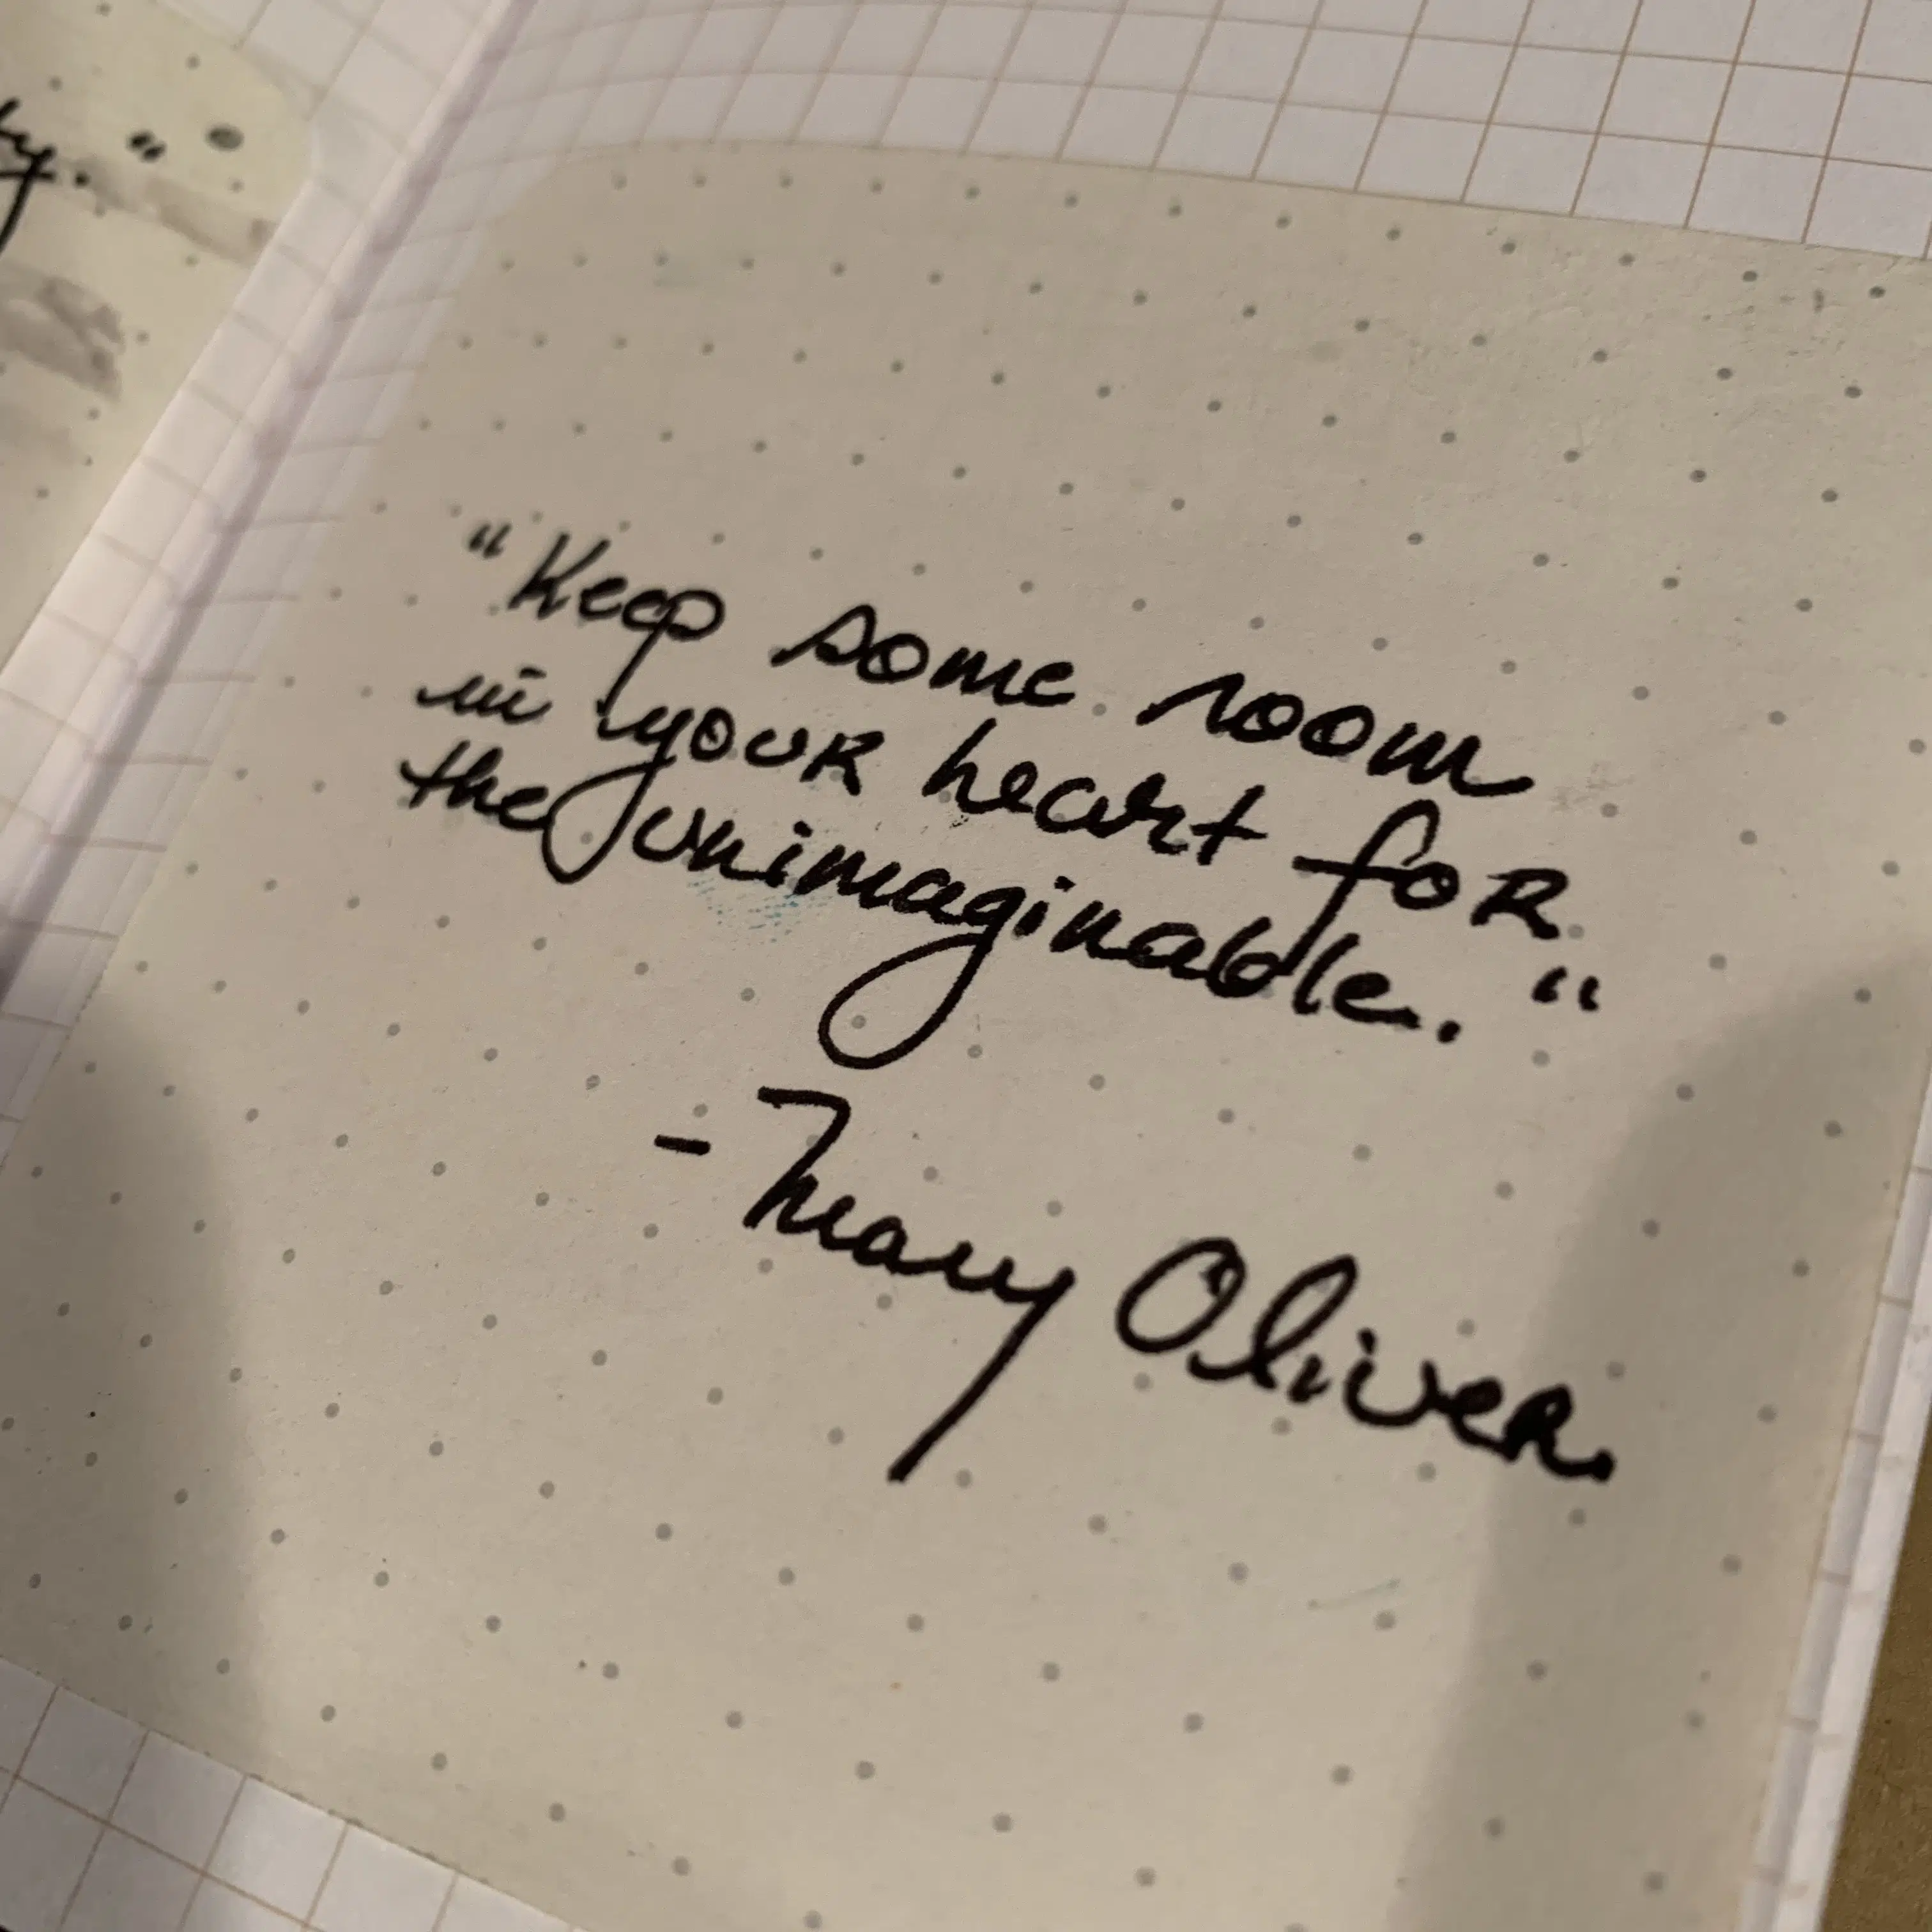 "Keep some room
in your heart for
the unimaginable."
- Mary Oliver.